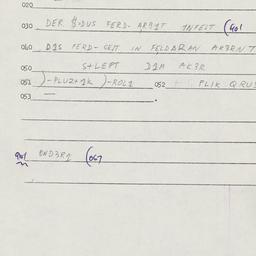 020
030 DER FERD- ARB1T 1NFELT (901
040 D1S FERD- GET IN FELDARAN AK3RNT
050 S+LEPT D1R AK3R
051 )-PLUZ+1K )-ROL1 052 PLIK QRUS
053 .
901 OND3R1 (057